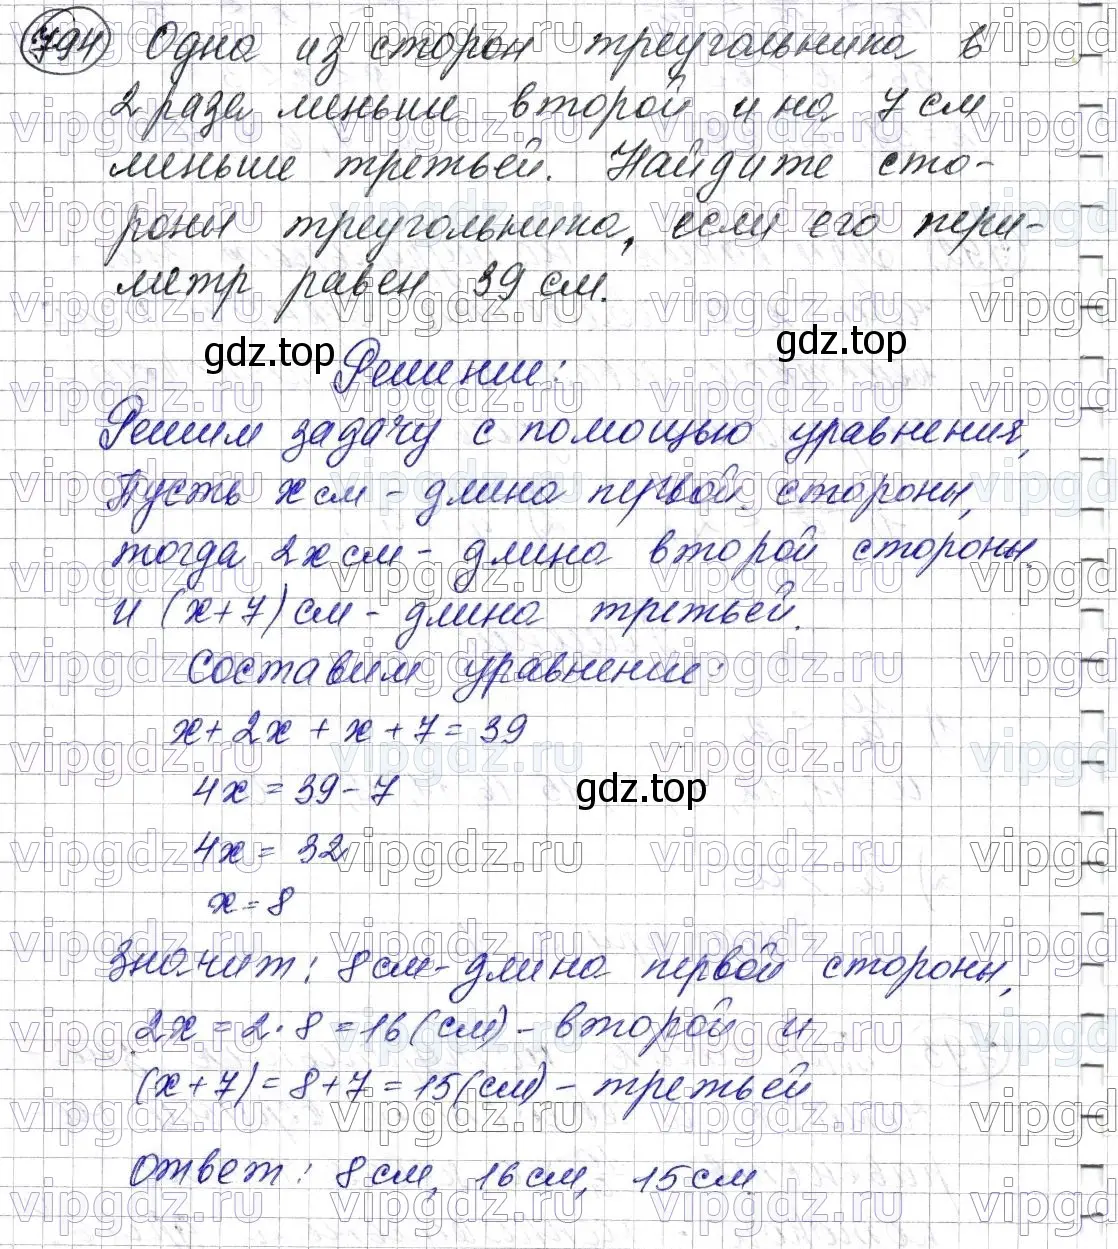 794 Одна из сторон треугольника в
2 раза меньше второй и на 7 см
меньше третьей. Найдите сто-
роны треугольника, если его пери-
метр равен 39 см.
gdz.top
gdz.top
Решение:
Решим задачу с помощью уравнения,
Пусть x см - длина первой стороны,
тогда 2x см - длина второй стороны
и (x+7) см - длина третьей.
Составим уравнение:
x + 2x + x + 7 = 39
4x = 39 - 7
gdz.top
4x = 32
x = 8
Значит: 8 см - длина первой стороны,
2x = 2·8 = 16 (см) - второй и
(x+7) = 8+7 = 15 (см) - третьей
Ответ: 8 см, 16 см, 15 см
vipgdz.ru